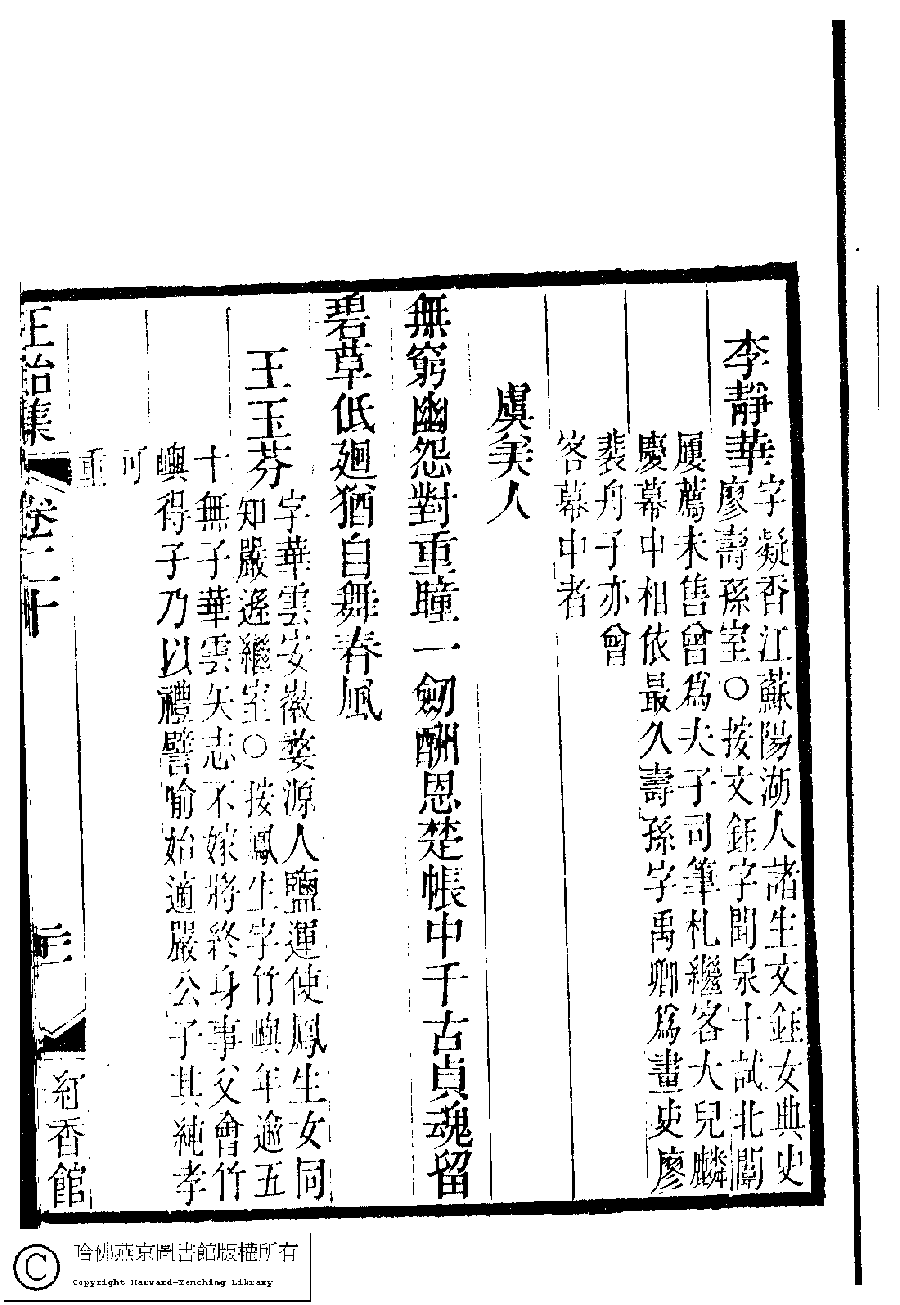 李靜華字凝香江蘇陽湖人諸生文鈺女典史
廖壽孫室○按文鈺字聞泉十試北闈
屢薦未售曾爲夫子司筆札繼客大兒麟
慶幕中相依最久壽孫字禹卿爲畫史廖
裴舟子亦曾
客幕中者
虞美人
無窮幽怨對重瞳一劒酬恩楚帳中千古貞魂留
碧草低廻猶自舞春風
王玉芬字華雲安徽婺源人鹽運使鳳生女同
知嚴遜繼室○按鳳生字竹嶼年逾五
十無子華雲矢志不嫁將終身事父會竹
嶼得子乃以禮譬喻始適嚴公子其純孝
可
重
卷二十
三
紅香館
哈佛燕京圖書館版權所有
Copyright Harvard-Yenching Library